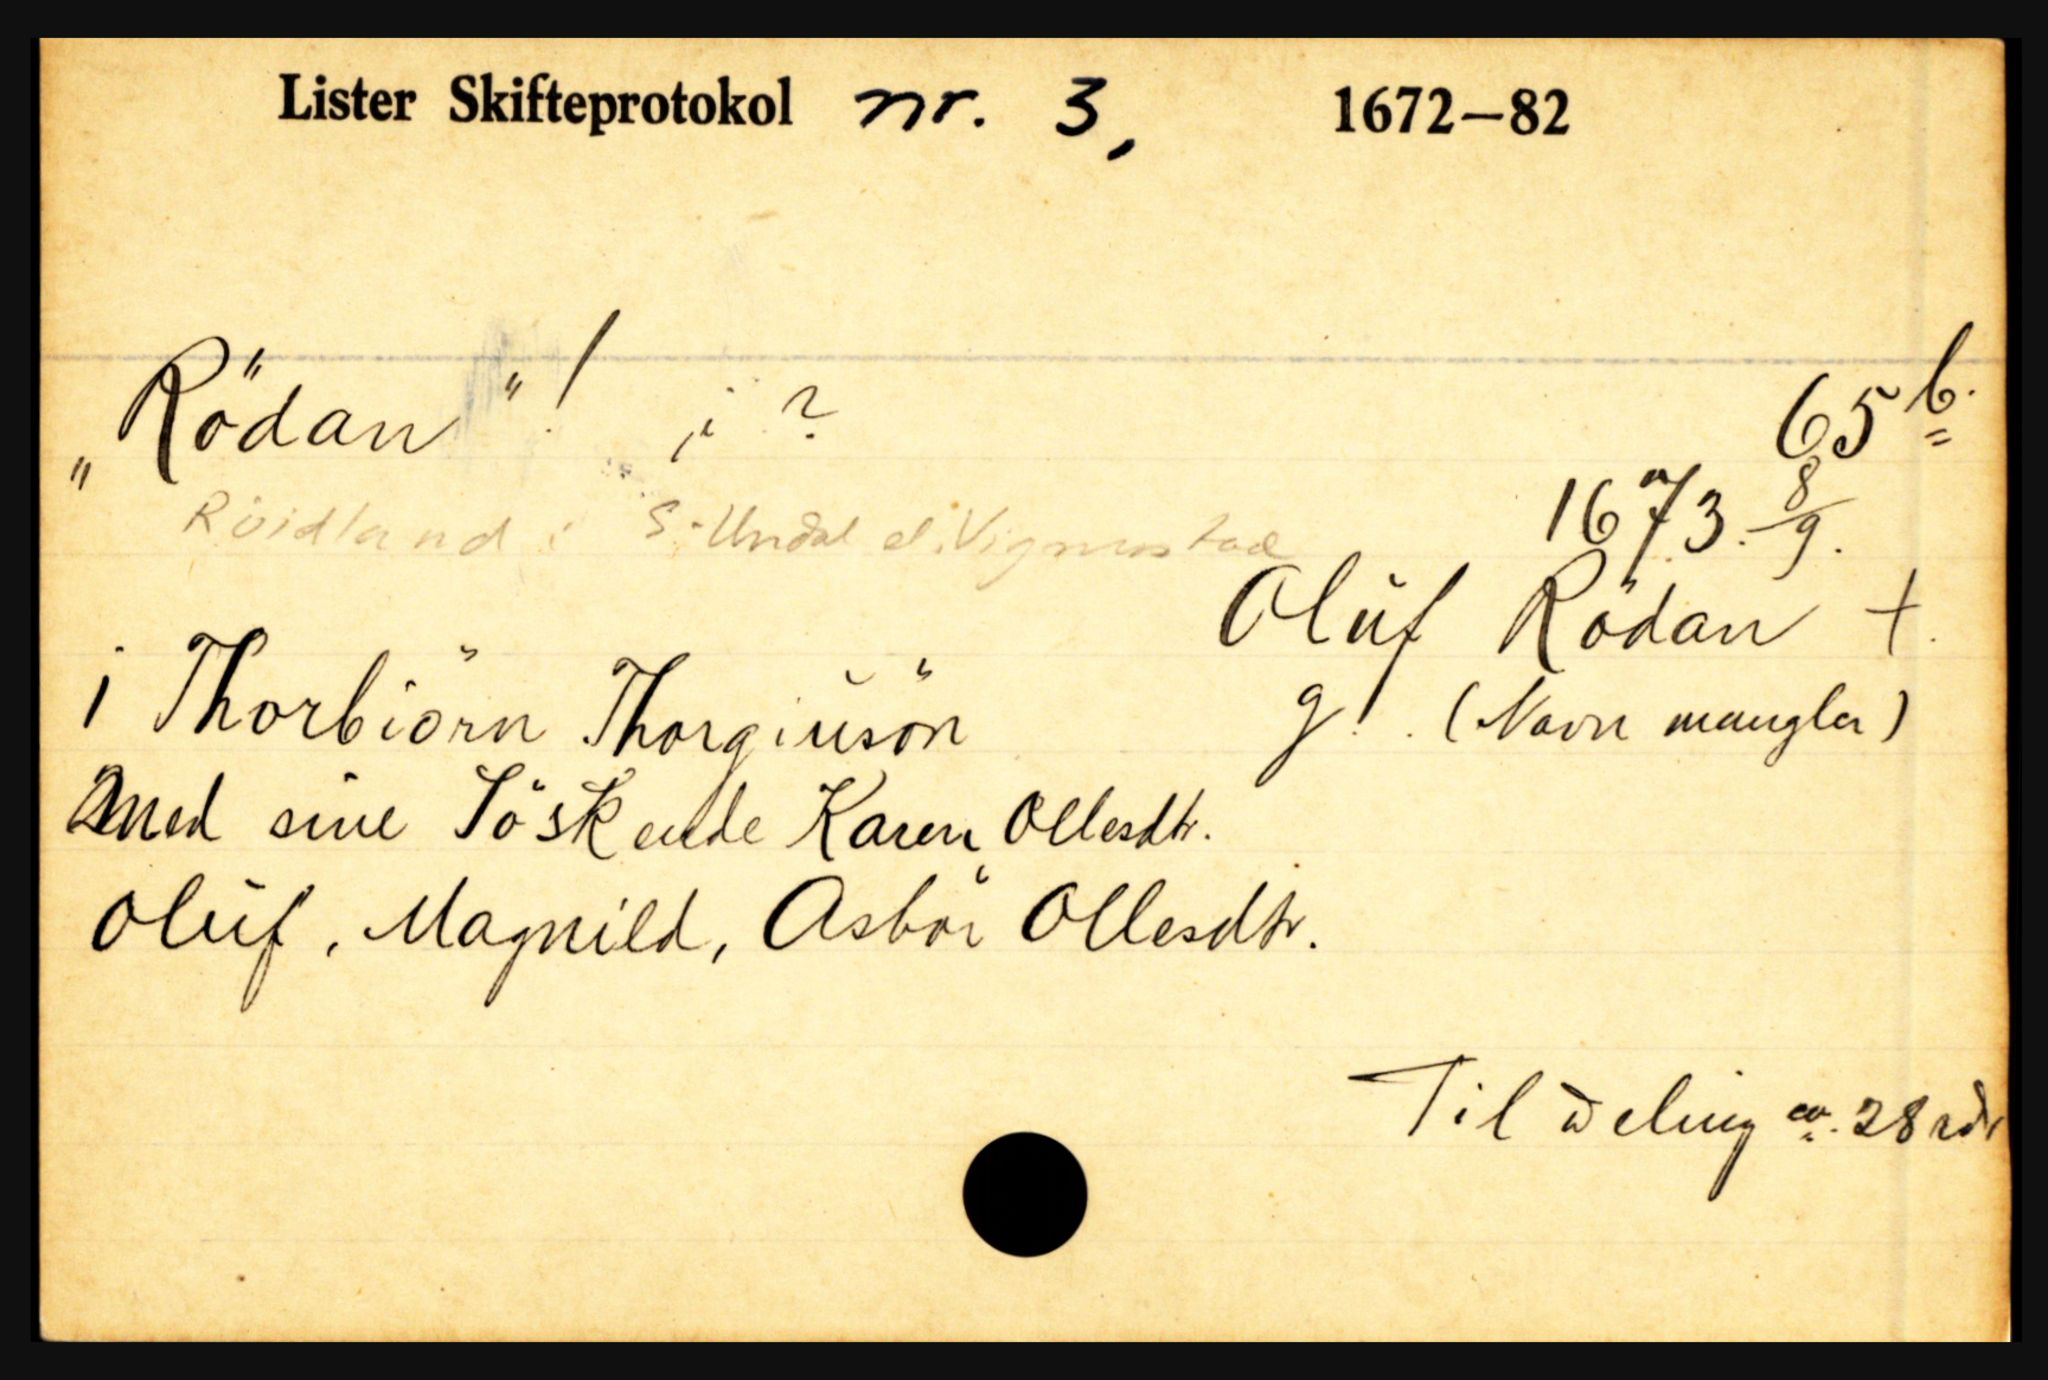 Lister Skifteprotokol nr. 3, 1672—82
„Rödan"! i ?
65 b.
Röidland i S. Undal el. Vigmostad
1673. 8/9.
Olŭf Rödan †.
g. (Navn mangler)
1 Thorbiörn Thorgiŭsön
2 med sine Söskende Karen Ollesdtr.
Olŭf, Magnild, Asbör Ollesdtr.
Til deling ca. 28 rdr